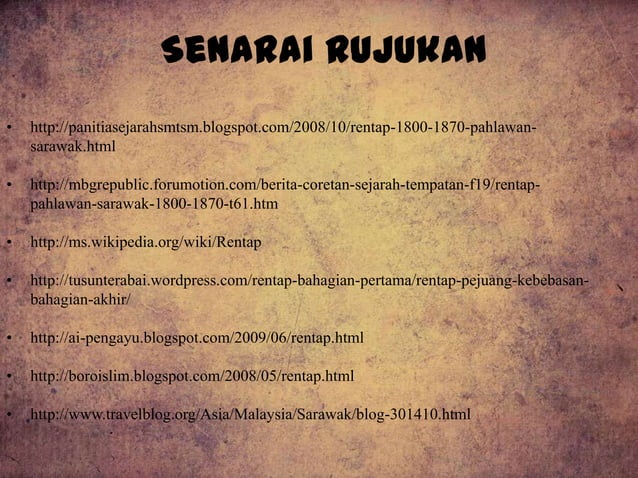 SENARAI RUJUKAN
• http://panitiasejarahsmtsm.blogspot.com/2008/10/rentap-1800-1870-pahlawan-
sarawak.html
• http://mbgrepublic.forumotion.com/berita-coretan-sejarah-tempatan-f19/rentap-
pahlawan-sarawak-1800-1870-t61.htm
• http://ms.wikipedia.org/wiki/Rentap
• http://tusunterabai.wordpress.com/rentap-bahagian-pertama/rentap-pejuang-kebebasan-
bahagian-akhir/
• http://ai-pengayu.blogspot.com/2009/06/rentap.html
• http://boroislim.blogspot.com/2008/05/rentap.html
• http://www.travelblog.org/Asia/Malaysia/Sarawak/blog-301410.html